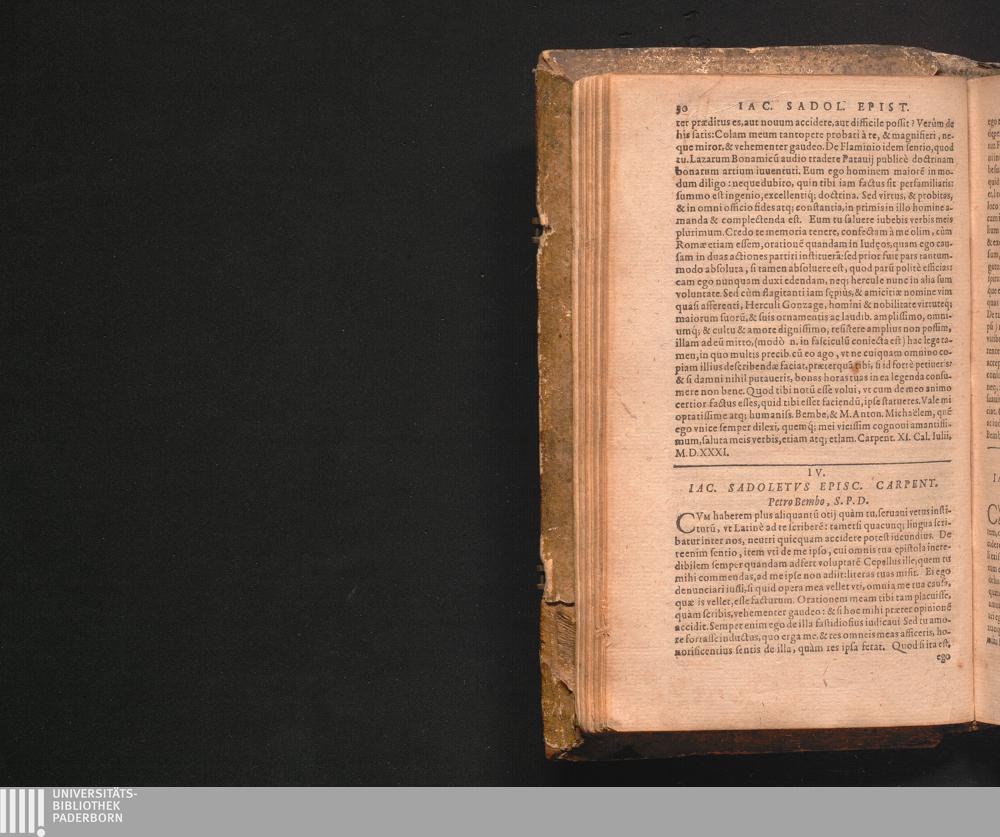 50 IAC. SADOL. EPIST.
ter præditus es, aut nouum accidere, aut difficile possit? Verùm de
his satis: Colam meum tantopere probari à te, & magnifieri, ne-
que miror, & vehementer gaudeo. De Flaminio idem sentio, quod
tu. Lazarum Bonamicū audio tradere Patauij publicè doctrinam
bonarum artium iuuentuti. Eum ego hominem maiorē in mo-
dum diligo: neque dubito, quin tibi iam factus sit perfamiliaris:
summo est ingenio, excellentiq; doctrina. Sed virtus, & probitas,
& in omni officio fides atq; constantia, in primis in illo homine a-
manda & complectenda est. Eum tu saluere iubebis verbis meis
plurimum. Credo te memoria tenere, confectam à me olim, cùm
Romæ etiam essem, orationē quandam in Iudęos, quam ego cau-
sam in duas actiones partiri institueră: sed prior fuit pars tantum-
modo absoluta, si tamen absoluere est, quod parū politè efficias:
eam ego nunquam duxi edendam, neq; hercule nunc in alia sum
voluntate. Sed cùm flagitanti iam sępiùs, & amicitiæ nomine vim
quasi afferenti, Herculi Gonzagę, homini & nobilitate virtuteq;
maiorum suorū, & suis ornamentis ac laudib. amplissimo, omni-
umq; & cultu & amore dignissimo, resistere amplius non possim,
illam ad eū mitto, (modò n. in fasciculū coniecta est) hac lege ta-
men, in quo multis precib. cū eo ago, vt ne cuiquam omnino co-
piam illius describendæ faciat, præterquā tibi, si id fortè petiueris:
& si damni nihil putaueris, bonas horas tuas in ea legenda consu-
mere non bene. Quod tibi notū esse volui, vt cum de meo animo
certior factus esses, quid tibi esset faciendū, ipse statueres. Vale mi
optatissime atq; humaniss. Bembe, & M. Anton. Michaëlem, quē
ego vnicè semper dilexi, quemq; mei vicissim cognoui amantissi-
mum, saluta meis verbis, etiam atq; etiam. Carpent. XI. Cal. Iulii,
M.D.XXXI.
IV.
IAC. SADOLETVS EPISC. CARPENT.
Petro Bembo, S.P.D.
CVM haberem plus aliquantū otij quàm tu, seruani vetus insti-
tutū, vt Latinè ad te scriberē: tametsi quacunq; lingua scri-
batur inter nos, neutri quicquam accidere potest iucundius. De
te enim sentio, item vti de me ipso, cui omnis tua epistola incre-
dibilem semper quandam adfert voluptatē Cepellus ille, quem tu
mihi commendas, ad me ipse non adiit: literas tuas misit. Ei ego
denunciari iussi, si quid opera mea vellet vti, omnia me tua causa,
quæ is vellet, esse facturum. Orationem meam tibi tam placuisse,
quàm scribis, vehementer gaudeo: & si hoc mihi præter opinionē
accidit. Semper enim ego de illa fastidiosius iudicaui Sed tu amo-
re fortasse inductus, quo erga me, & res omneis meas afficeris, ho-
norificentius sentis de illa, quàm res ipsa ferat. Quod si ita est,
ego
UNIVERSITÄTS-
BIBLIOTHEK
PADERBORN